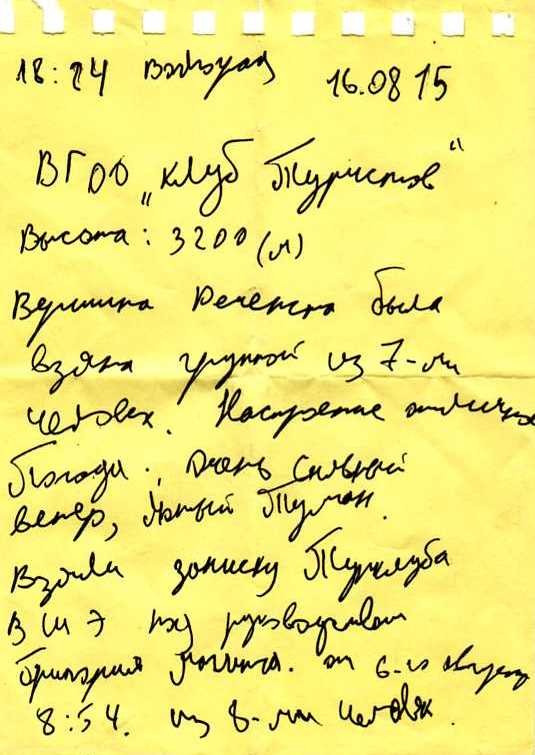 18:24 Волгоград 16.08.15
ВГОО „Клуб Туристов“
Высота: 3200 (м)
Вершина была
взята группой из 7-ми
человек. Настроение отличное
Погода: очень сильный
ветер, густой Туман.
Взяли записку Турклуба
под руководством
Григория от 6-го августа
8:54. из 8-ми человек.